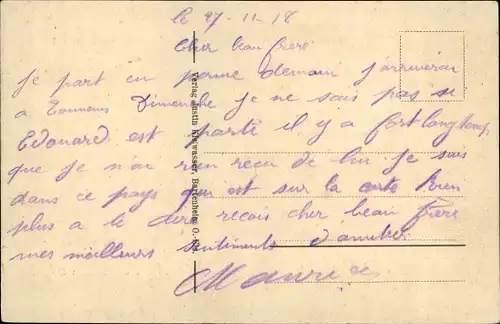 le 27-11-18
Cher beau frère
Je part en perme demain j'arriverai
a Tonneins Dimanche je ne sais pas si
Edouard est parti il y a fort longtemps
que je n'ai rien reçu de lui Je suis
dans ce pays qui est sur la carte Rien
plus a te dire reçois cher beau frère
mes meilleurs sentiments d'amitiés
Maurice
Verlag Justin Battenheim O.-Els.